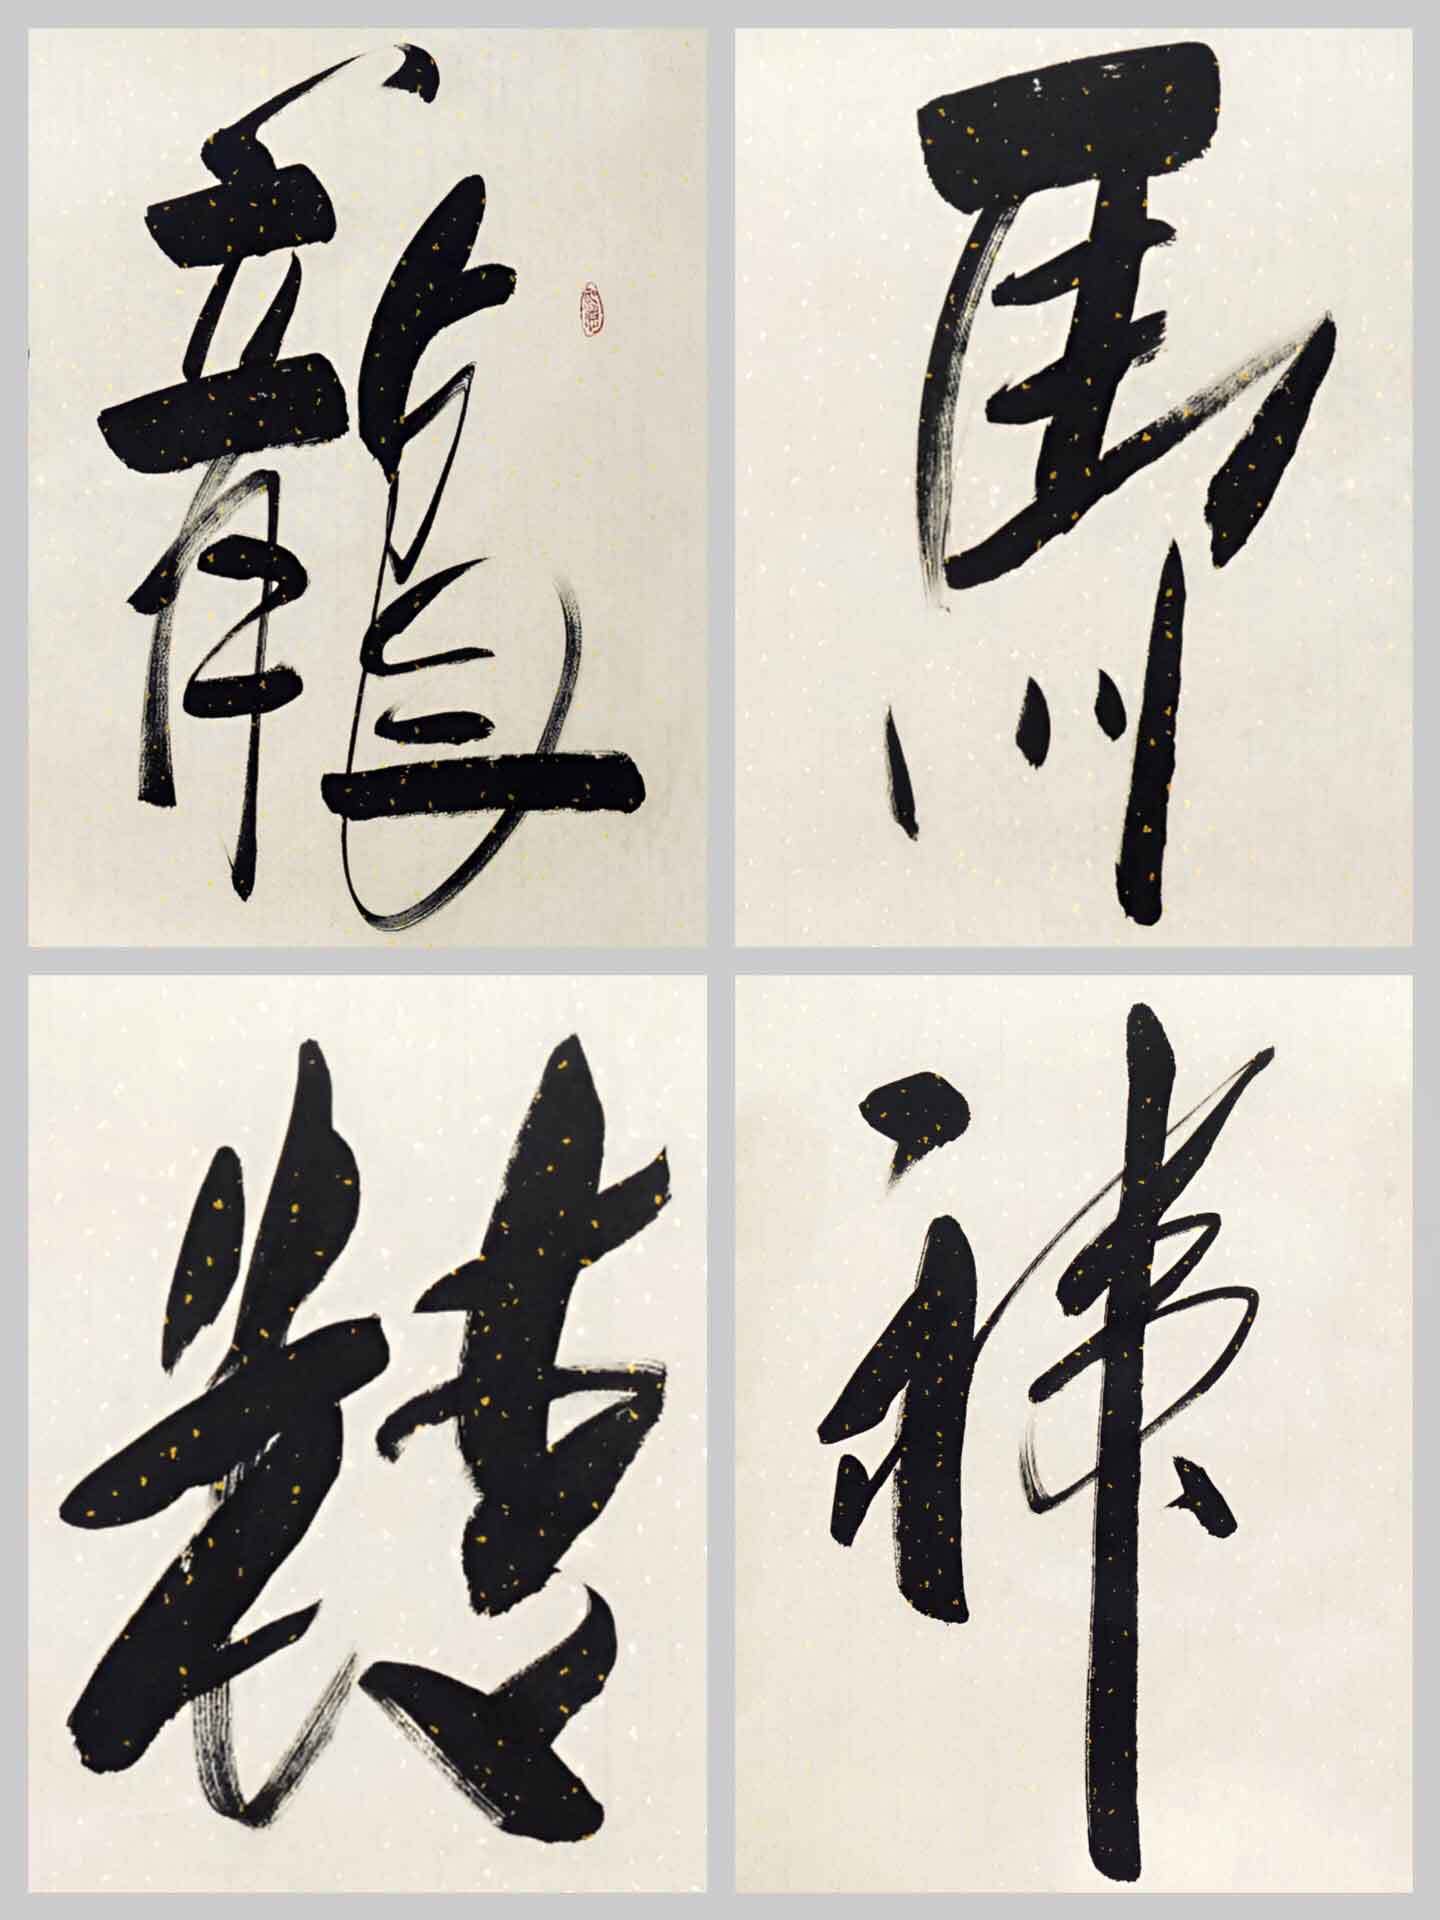 龍馬
精神